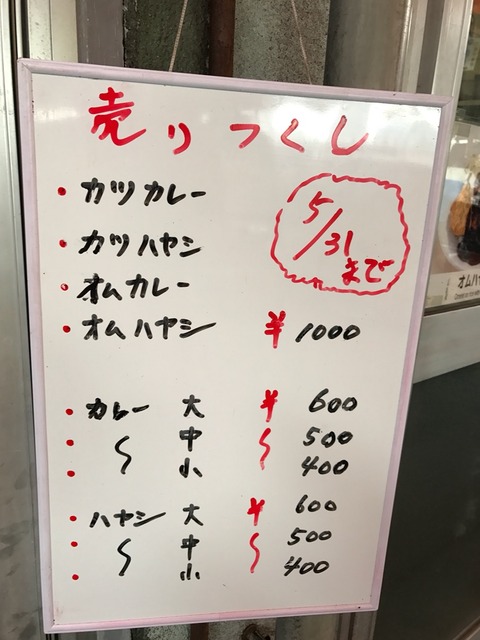 売りつくし
5/31
まで
・カツカレー
・カツハヤシ
・オムカレー
・オムハヤシ ¥1000
・カレー 大 ¥600
・〃 中 〃 500
・〃 小 400
・ハヤシ 大 ¥600
・〃 中 〃 500
・〃 小 400
オムハヤ